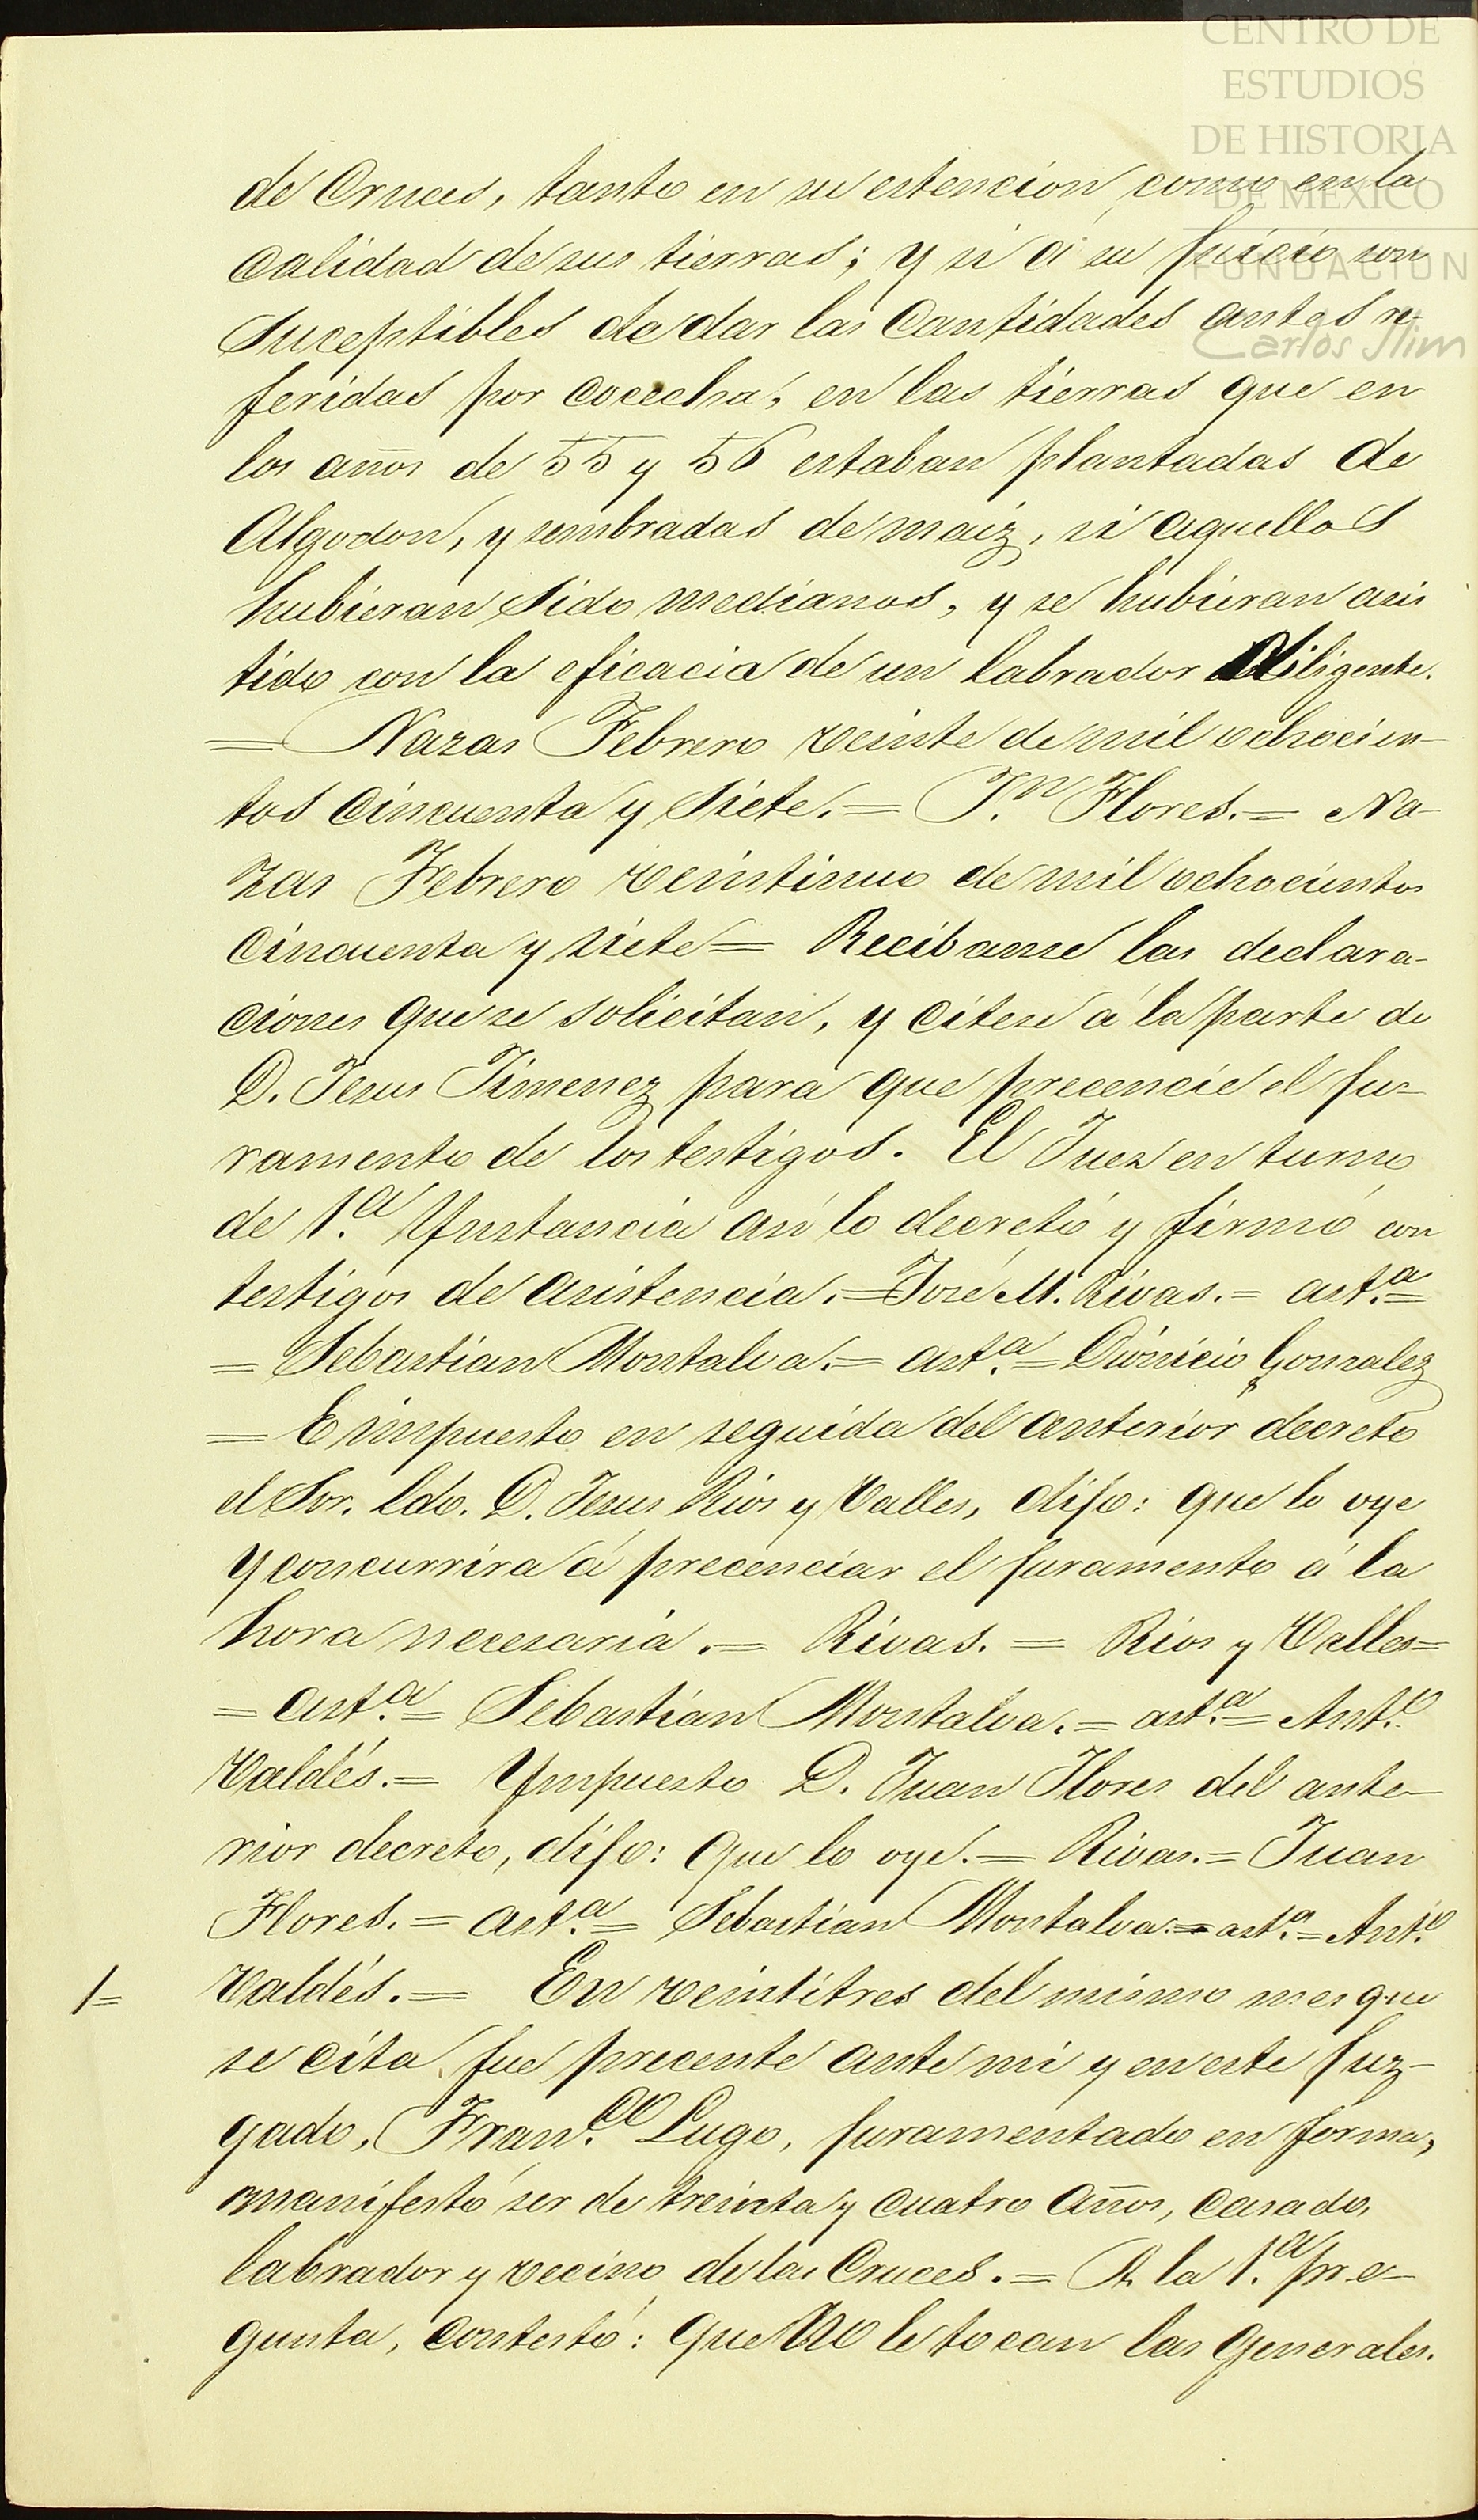 CENTRO DE
ESTUDIOS
DE HISTORIA
DE MEXICO
FUNDACIÓN
Carlos Slim
de Cruces, tanto en su estencion, como en la
calidad de sus tierras; y si á su juicio son
suceptibles de dar las cantidades antes re-
feridas por cocecha, en las tierras que en
los años de 55 y 56 estaban plantadas de
Algodon, y sembradas de maiz, si aquellos
hubieran sido medianos, y se hubieran asis
tido con la eficacia de un labrador diligente.
= Nazas Febrero veinte de mil ochocien-
tos cincuenta y siete. = J.n Flores. = Na-
zas Febrero veintinuo de mil ochocientos
cincuenta y siete = Recibanse las declara-
ciones que se solicitan, y citese á la parte de
D. Jesus Jimenez para que precencie el ju-
ramento de los testigos. El Juez en turno
de 1.a Ynstancia así lo decretó y firmó con
testigos de asistencia. = José M. Rivas. = ast.a =
= Sebastian Montalva. = ast.a = Dionicio Gonzalez
= E impuesto en seguida del anterior decreto
el Sor. Ldo. D. Jesus Rios y Valles, dijo: que lo oye
y concurrira á precenciar el juramento á la
hora necesaria. = Rivas. = Rios y Valles =
= ast.a = Sebastián Montalva. = ast.a = Ant.o
Valdés. = Ympuesto D. Juan Flores del ante-
rior decreto, dijo: que lo oye. = Rivas. = Juan
Flores. = ast.a = Sebastian Montalva. = ast.a = Ant.o
1 = Valdés. = En veintitres del mismo mes que
se cita, fue precente ante mi y en este juz-
gado, Fran.co Lugo, juramentado en forma,
manifestó ser de treinta y cuatro años, casado,
labrador y vecino de las Cruces. = A la 1.a pre-
gunta, contestó: que no le tocan las generales.